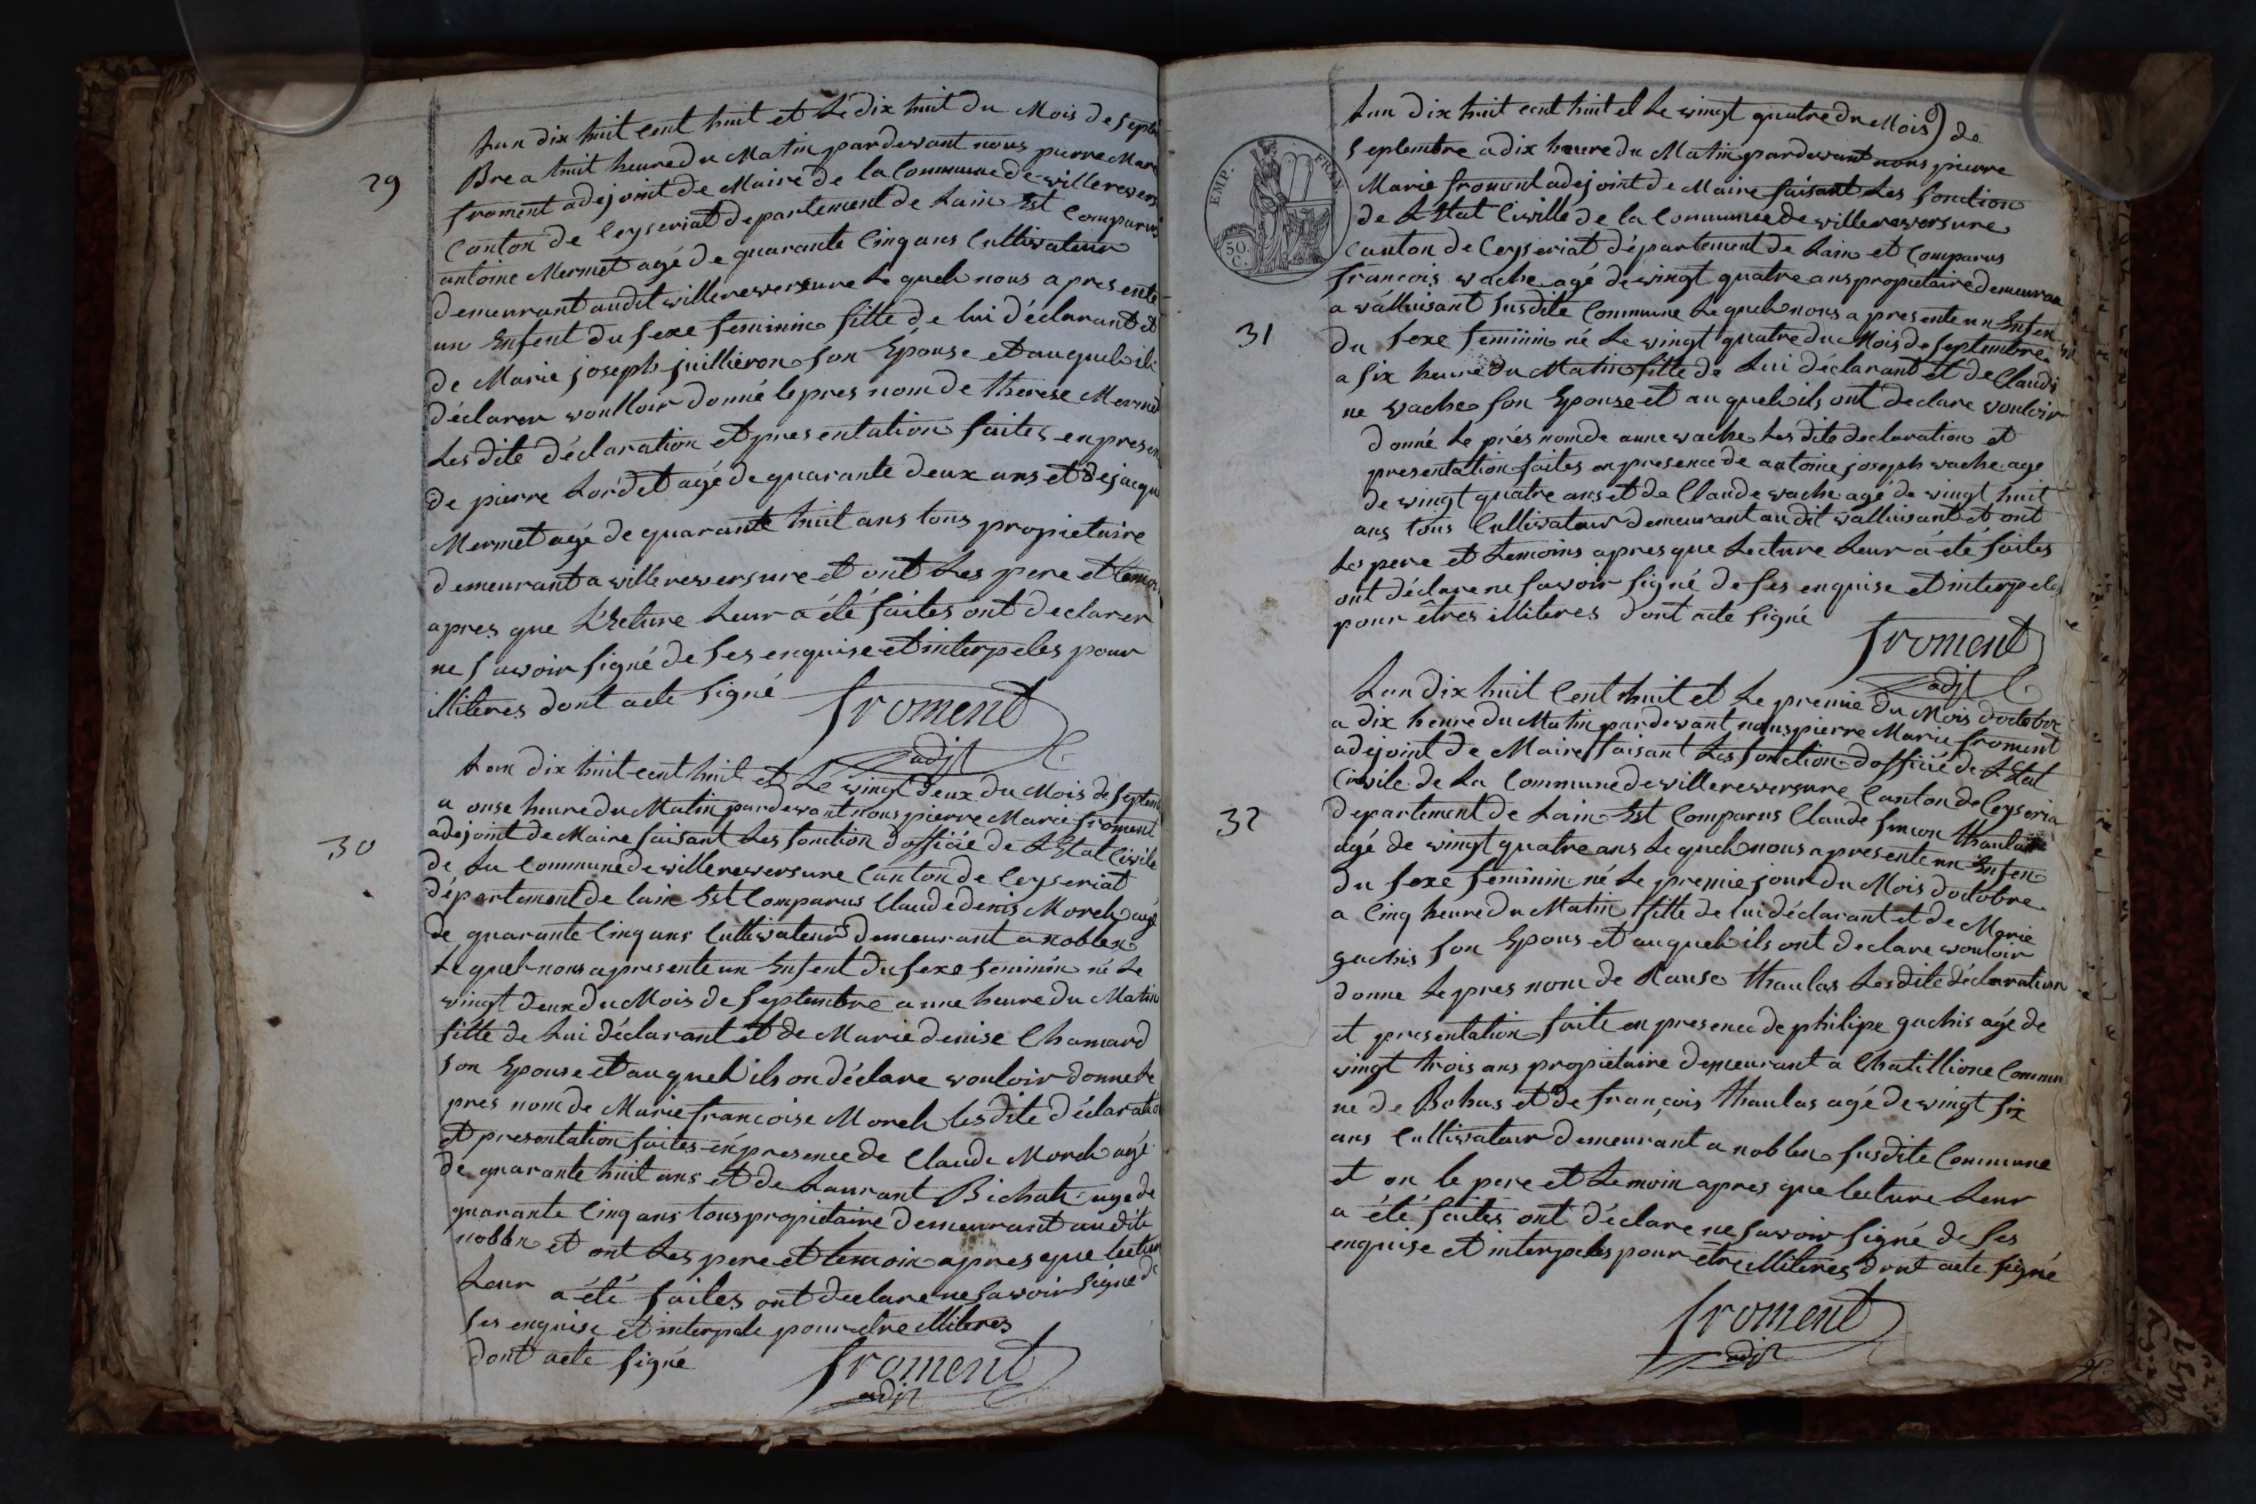 29
Lan dix huit cent huit et Le dix huit du Mois de Septe
Bre a huit heure du Matin pardevant nous pierre Marie
froment adejoint de Maire de la Commune de villereverse
Canton de Ceyseriat departement de Lain Est Comparus
antoine Mermet agé de quarante Cinq ans Cultivateur
demeurant audit villereversure Le quel nous a presente
un Enfent du sexe feminin fille de lui déclarant et
de Marie joseph juillieron son Epouse et au quel ils
déclarer voulloir donné le pres nom de therese Mermet
Les dite déclaration et presentation faites en presen
de pierre Lordet agé de quarante deux ans et de jacque
Mermet agé de quarante huit ans tous propietaire
demeurant a villereversure et ont Les pere et temoi
apres que L'Ecture Leur a été faites ont declarer
ne savoir signé de ses enquise et interpeles pour
illiteres dont acte signé
froment
adjt
30
Lan dix huit cent huit et Le vingt deux du Mois de Septem
a onse heure du Matin pardevant nous pierre Marie froment
adejoint de Maire faisant Les fonction dofficié de LEtat Civile
de La Commune de villereversure Canton de Ceyseriat
département de lain Est Comparus Claude denis Morel agé
de quarante Cinq ans Cultivateur demeurant a noblen
Le quel nous a presente un Enfent du sexe feminin né Le
vingt deux du Mois de Septembre a une heure du Matin
fille de Lui déclarant et de Marie denise Chamard
son Epouse et au quel ils on déclare vouloir donne Le
pres nom de Marie francoise Morel Les dite déclaratio
et presentation faites en presence de Claude Morel agé
de quarante huit ans et de Laurant Bichat age de
quarante Cinq ans tous propietaire demeurant au dit
noblen et ont Les pere et temoin apres que Lectur
Leur a été faites ont declare ne savoir signé de
ses enquise et interpele pour etre illiteres
dont acte signé
froment
adjt
EMP. FRAN.
50. C.
Lan dix huit cent huit et Le vingt quatre du Mois de
Septembre a dix heure du Matin pardevant nous pierre
Marie froment adejoint de Maire faisant Les fonction
de L'Etat Civille de la Commune de villereversure
Canton de Ceyseriat département de Lain et Comparus
francois vache agé de vingt quatre ans propietaire demeuran
a valluisant susdite Commune Le quel nous a presente un Enfen
31
du sexe feminin né Le vingt quatre du Mois de Septembre
a six heure du Matin fille de Lui déclarant et de Claudi
ne vache son Epouse et au quel ils ont declare vouloir
donné Le prés nom de anne vache Les dite declaration et
presentation faites en presence de antoine joseph vache age
de vingt quatre ans et de Claude vache agé de vingt huit
ans tous Cultivateur demeurant au dit valluisant et ont
Le pere et temoins apres que Lecture Leur a été faites
ont déclare ne savoir signé de ses enquise et interpeles
pour êtres illiteres dont acte signé
froment
adjt
Lan dix huit Cent huit et Le premie du Mois doctobre
a dix heure du Matin pardevant nous pierre Marie froment
adejoint de Maire faisant Les fonction dofficié de LEtat
Civile de La Commune de villereversure Canton de Ceyseria
32
departement de Lain Est Comparus Claude simon thaulas
agé de vingt quatre ans Le quel nous a presente un Enfen
du sexe feminin né Le premie jour du Mois doctobre
a Cinq heure du Matin fille de lui déclarant et de Marie
gachis son Epous et au quel ils ont declare vouloir
donne Le pres nom de Rause thaulas Les dite déclaration
et presentation faite en presence de philipe gachis agé de
vingt trois ans propietaire demeurant a Chatillione Commu
ne de Bohas et de françois thaulas agé de vingt six
ans Cultivateur demeurant a noblen susdite Commune
et on le pere et temoin apres que lecture Leur
a été faites ont déclare ne savoir signé de ses
enquise et interpeles pour etre illiteres dont acte signé
froment
adjt